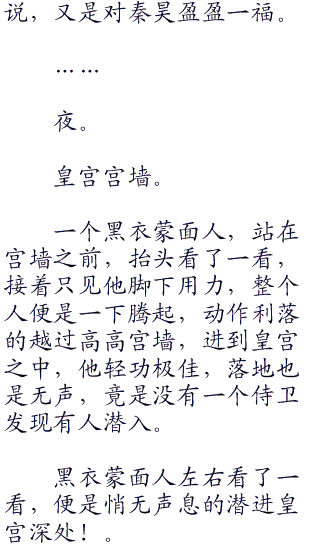 说，又是对秦昊盈盈一福。
……
夜。
皇宫宫墙。
一个黑衣蒙面人，站在
宫墙之前，抬头看了一看，
接着只见他脚下用力，整个
人便是一下腾起，动作利落
的越过高高宫墙，进到皇宫
之中，他轻功极佳，落地也
是无声，竟是没有一个侍卫
发现有人潜入。
黑衣蒙面人左右看了一
看，便是悄无声息的潜进皇
宫深处！。